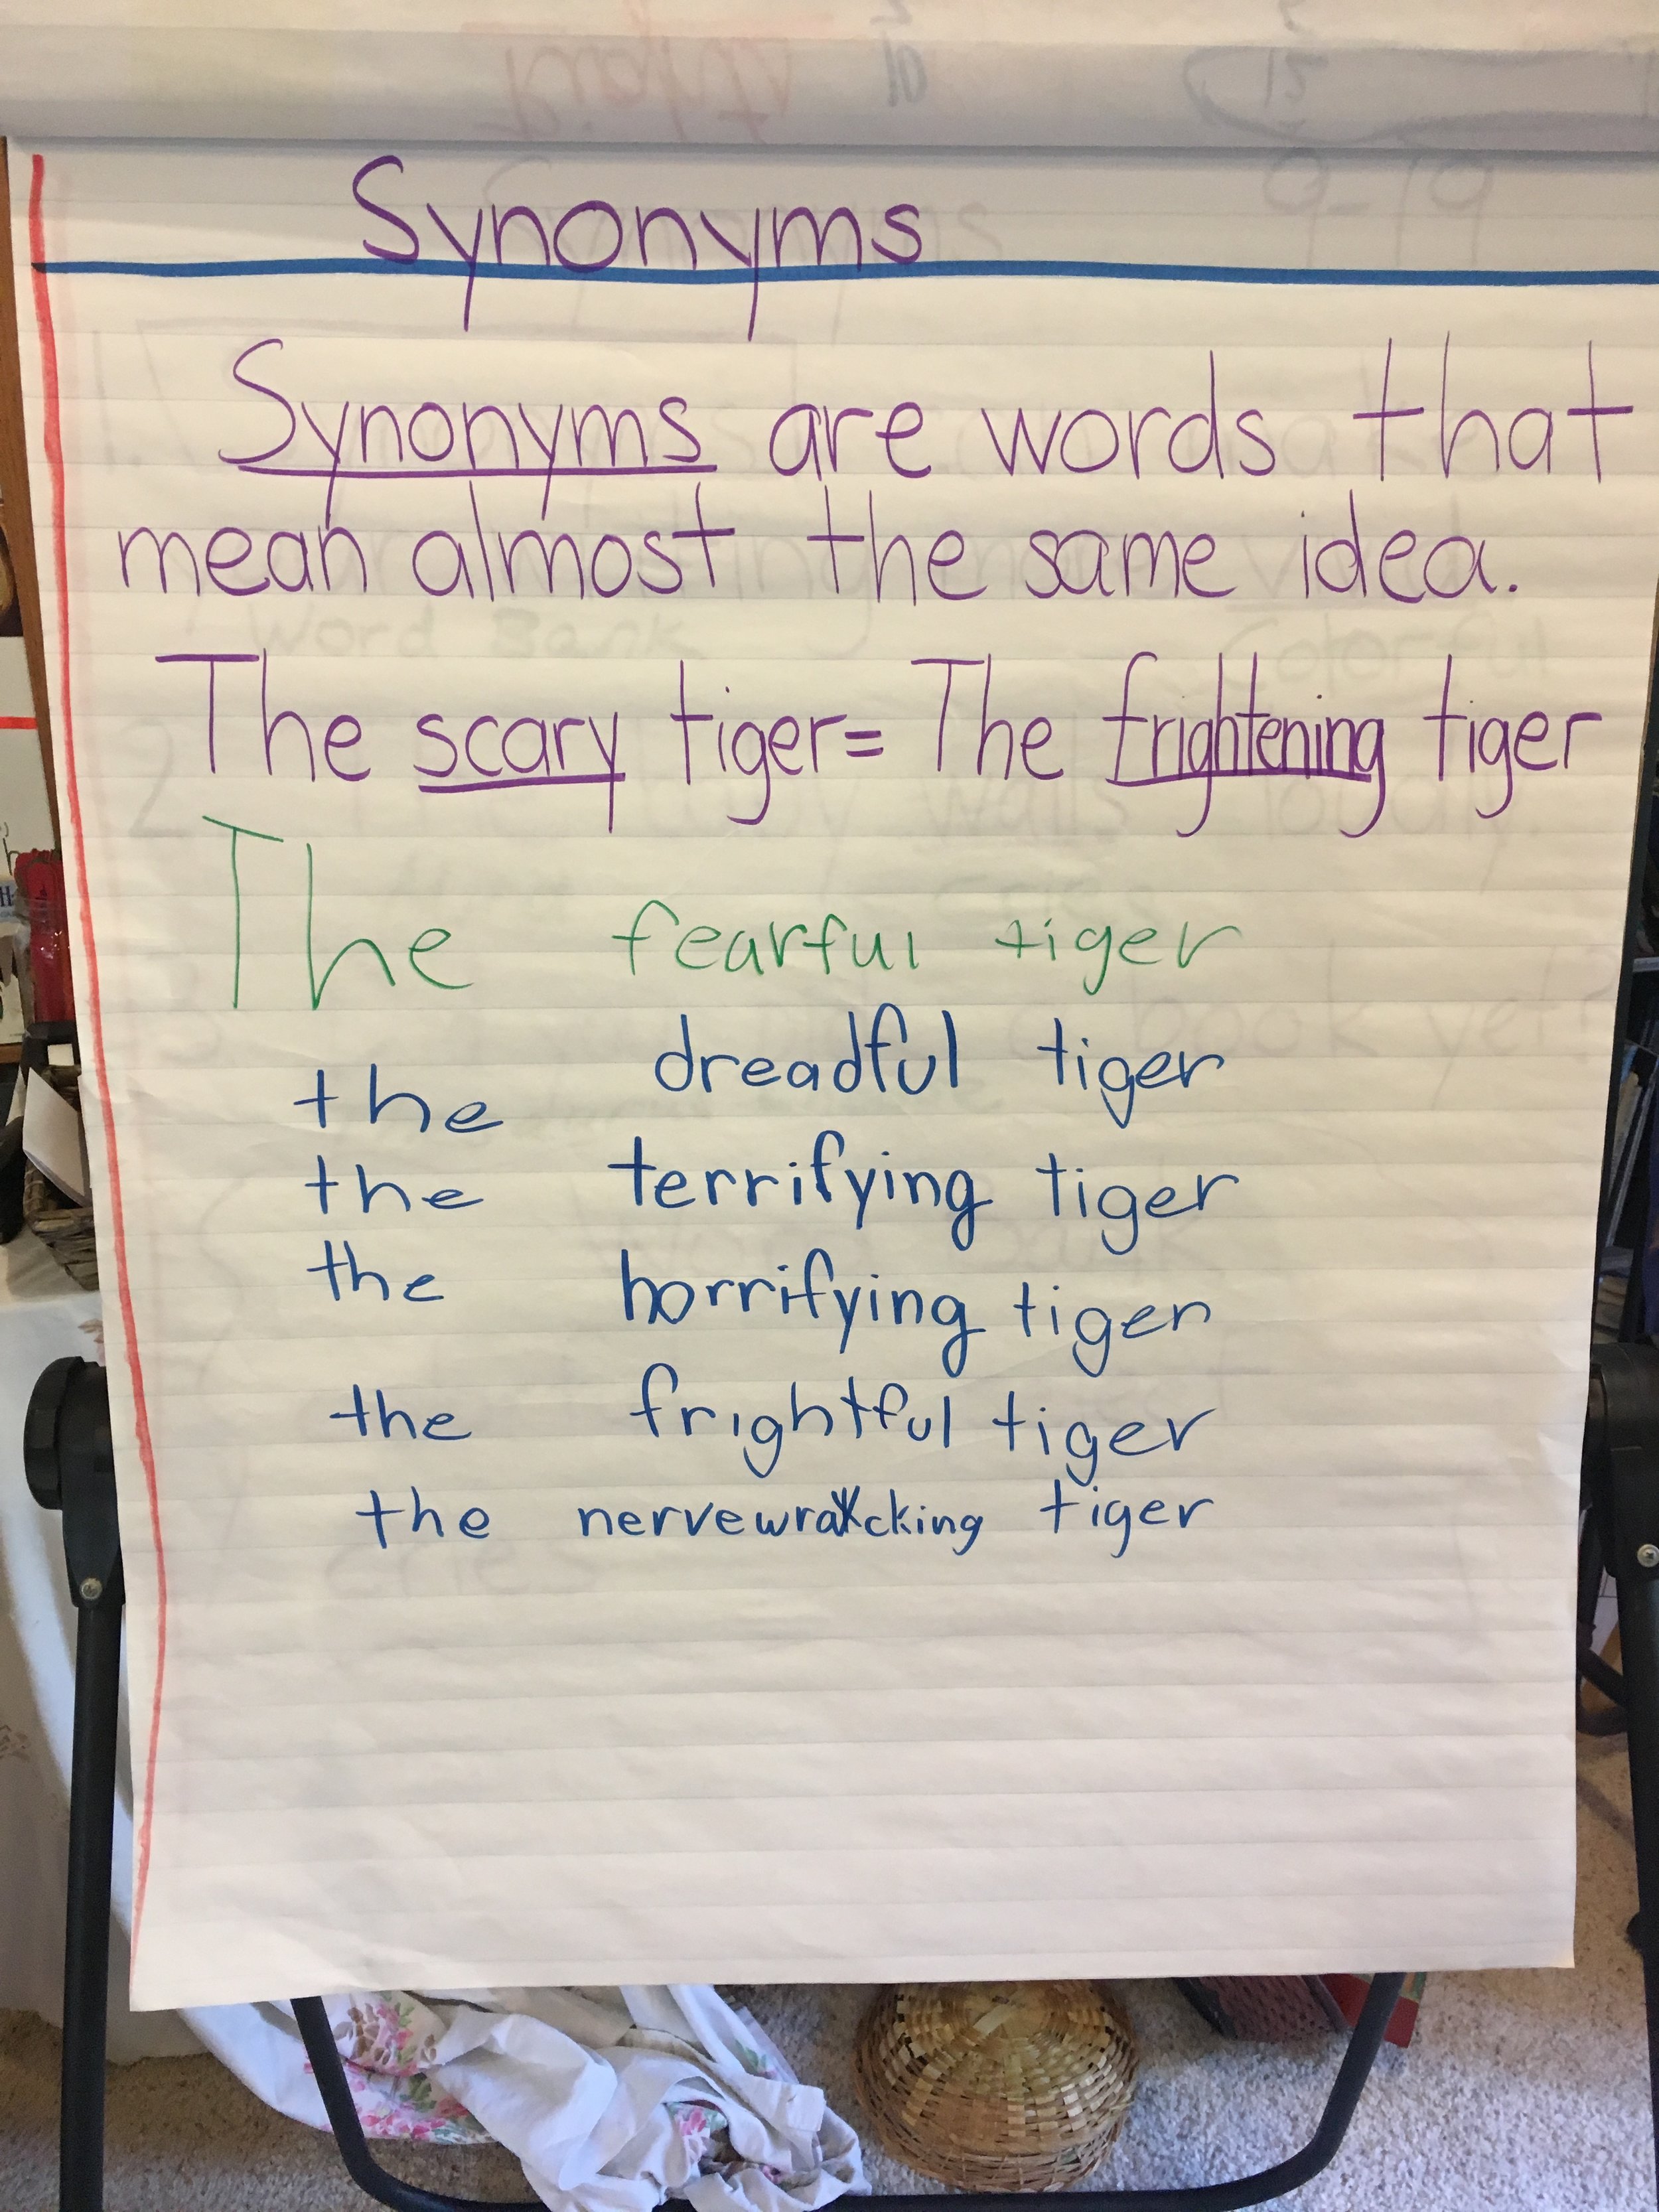 Synonyms
Synonyms are words that
mean almost the same idea.
The scary tiger= The frightening tiger
The fearful tiger
the dreadful tiger
the terrifying tiger
the horrifying tiger
the frightful tiger
the nervewracking tiger